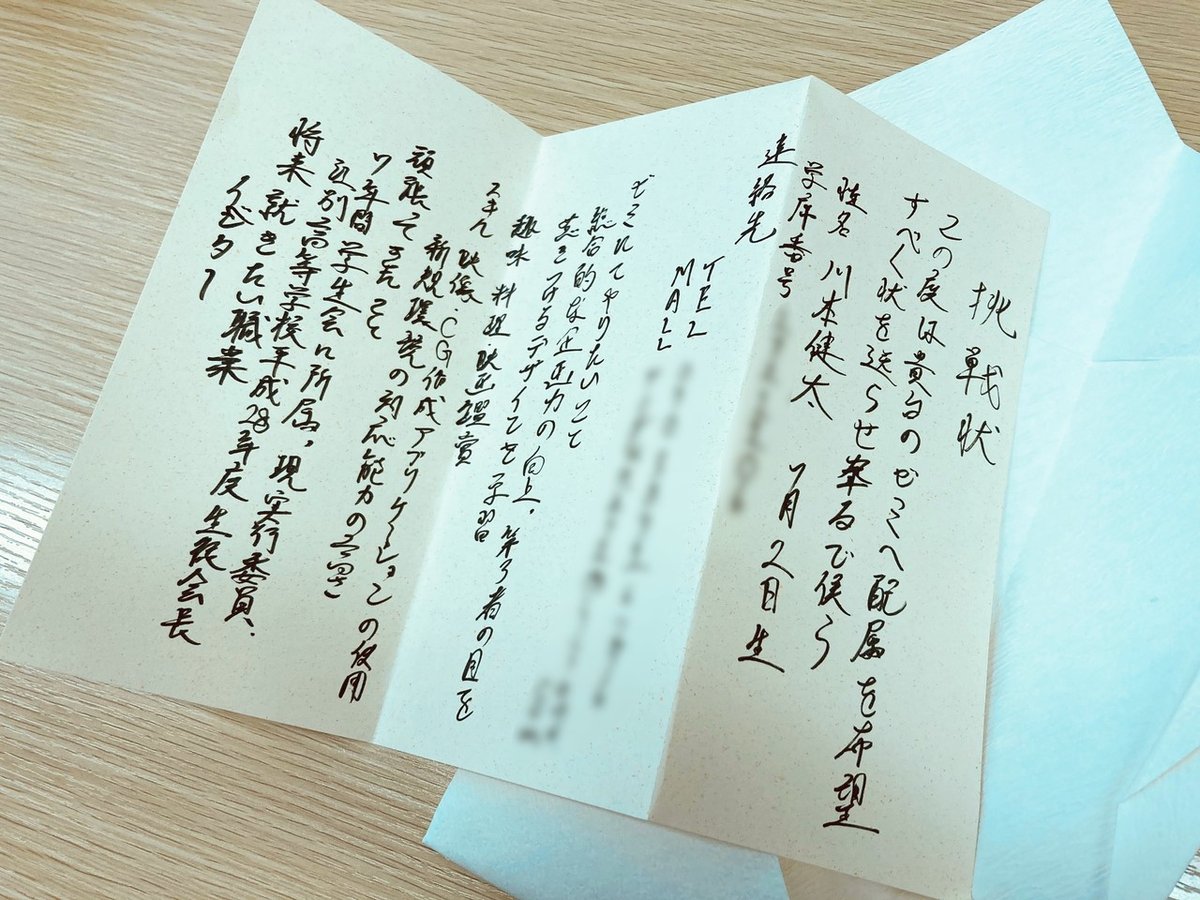 挑戦状
この度は貴台のゼミへ配属を希望
すべく状を送らせ奉るで候う
姓名 川本健太 7月2日生
学席番号
連絡先
TEL
MAIL
ゼミにてやりたいこと
総合的な企画力の向上、第3者の目を
惹きつけるデザインを学習
趣味 料理・映画鑑賞
スキル 映像・CG作成アプリケーションの使用
新規環境の対応能力の高さ
頑張ってきたこと
7年間学生会に所属、現実行委員、
高等学校平成28年度生徒会長
将来就きたい職業